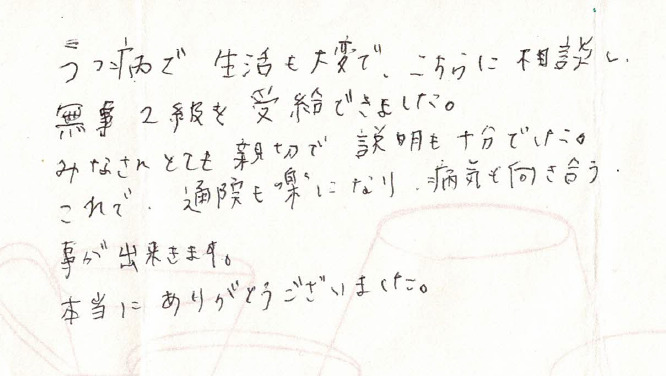 うつ病で 生活も大変で、こちらに相談し、
無事2級を受給できました。
みなさんとても親切で説明も十分でした。
これで、通院も楽になり、病気も向き合う
事が出来きます。
本当にありがとうございました。